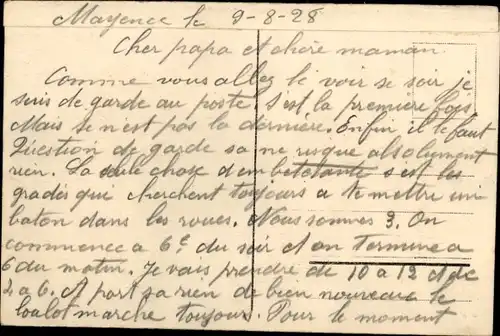 Mayence le 9-8-28
Cher papa et chère maman
Comme vous allez le voir se soir je
suis de garde au poste s'est la première fois
Mais se n'est pas la dernière. Enfin il le faut
Question de garde sa ne risque absolument
rien. La seule chose d'embetetante s'est les
gradés qui cherchent toujours a te mettre un
baton dans les roues. Nous sommes 3. On
commence a 6e du soir et on termine a
6 du matin. Je vais prendre de 10 a 12 et de
4 a 6. A part sa rien de bien nouveau le
boulot marche toujours. Pour le moment